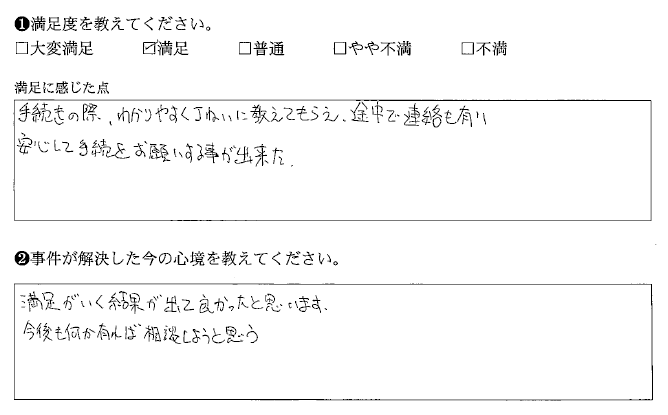 ❶満足度を教えてください。
□大変満足 ☑満足 □普通 □やや不満 □不満
満足に感じた点
手続きの際、わかりやすく丁ねいに教えてもらえ、途中で連絡も有り
安心して手続をお願いする事が出来た。
❷事件が解決した今の心境を教えてください。
満足がいく結果が出て良かったと思います。
今後も何か有れば相談しようと思う